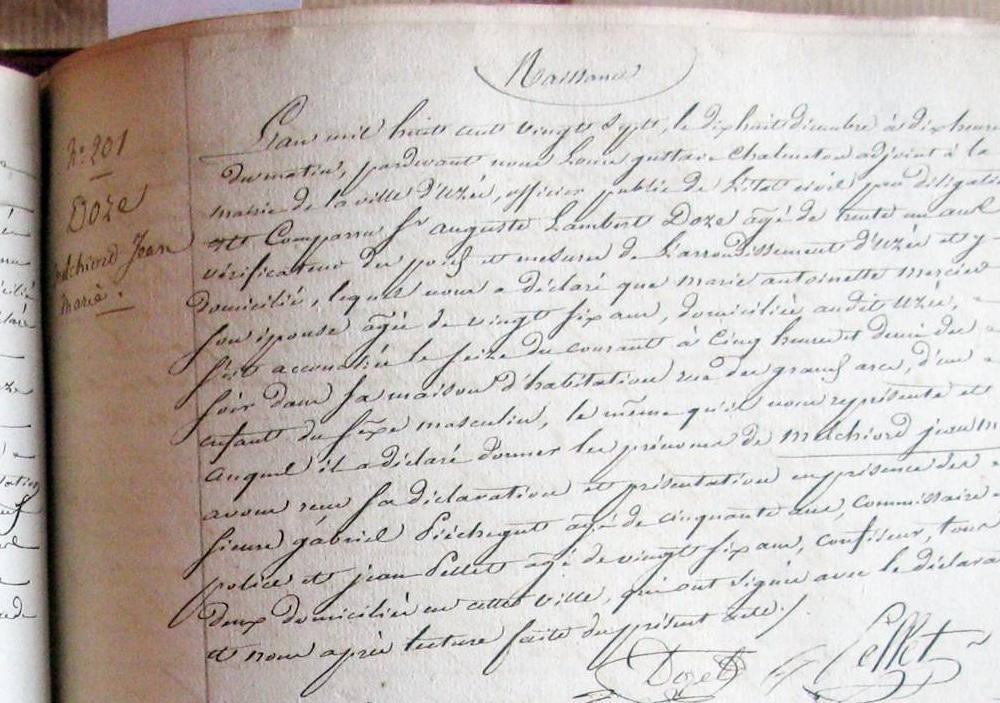 Naissance
N.º 201
Doze
Melchiord Jean
Marie.
L'an mil huit cent vingt sept, le dix huit décembre à dix heures
du matin, pardevant nous Louis gustave Chalmeton adjoint à la
mairie de la ville d'Uzès, officier public de l'état civil par délégation
est Comparu Sr auguste Lambert Doze âgé de trente un ans
vérificateur des poids et mesures de l'arrondissement d'Uzès et y
domicilié, lequel nous a déclaré que marie antoinette mercier
son épouse âgée de vingt six ans, domiciliée audit Uzès,
s'est accouchée le seize du courant à cinq heures et demi du
soir dans sa maison d'habitation rue du grand arce, d'un
enfant du sexe masculin, le même qu'il nous représente et
auquel il a déclaré donner les prénoms de melchiord jean m
avons reçu sa déclaration et présentation en présence des
sieurs gabriel Piéchegut âgé de cinquante ans, commissaire
police et jean Pellet âgé de vingt six ans, confiseur, tous
deux domiciliés en cette ville, qui ont signés avec le déclara
et nous après lecture faite du présent acte./.
Doze
Pellet